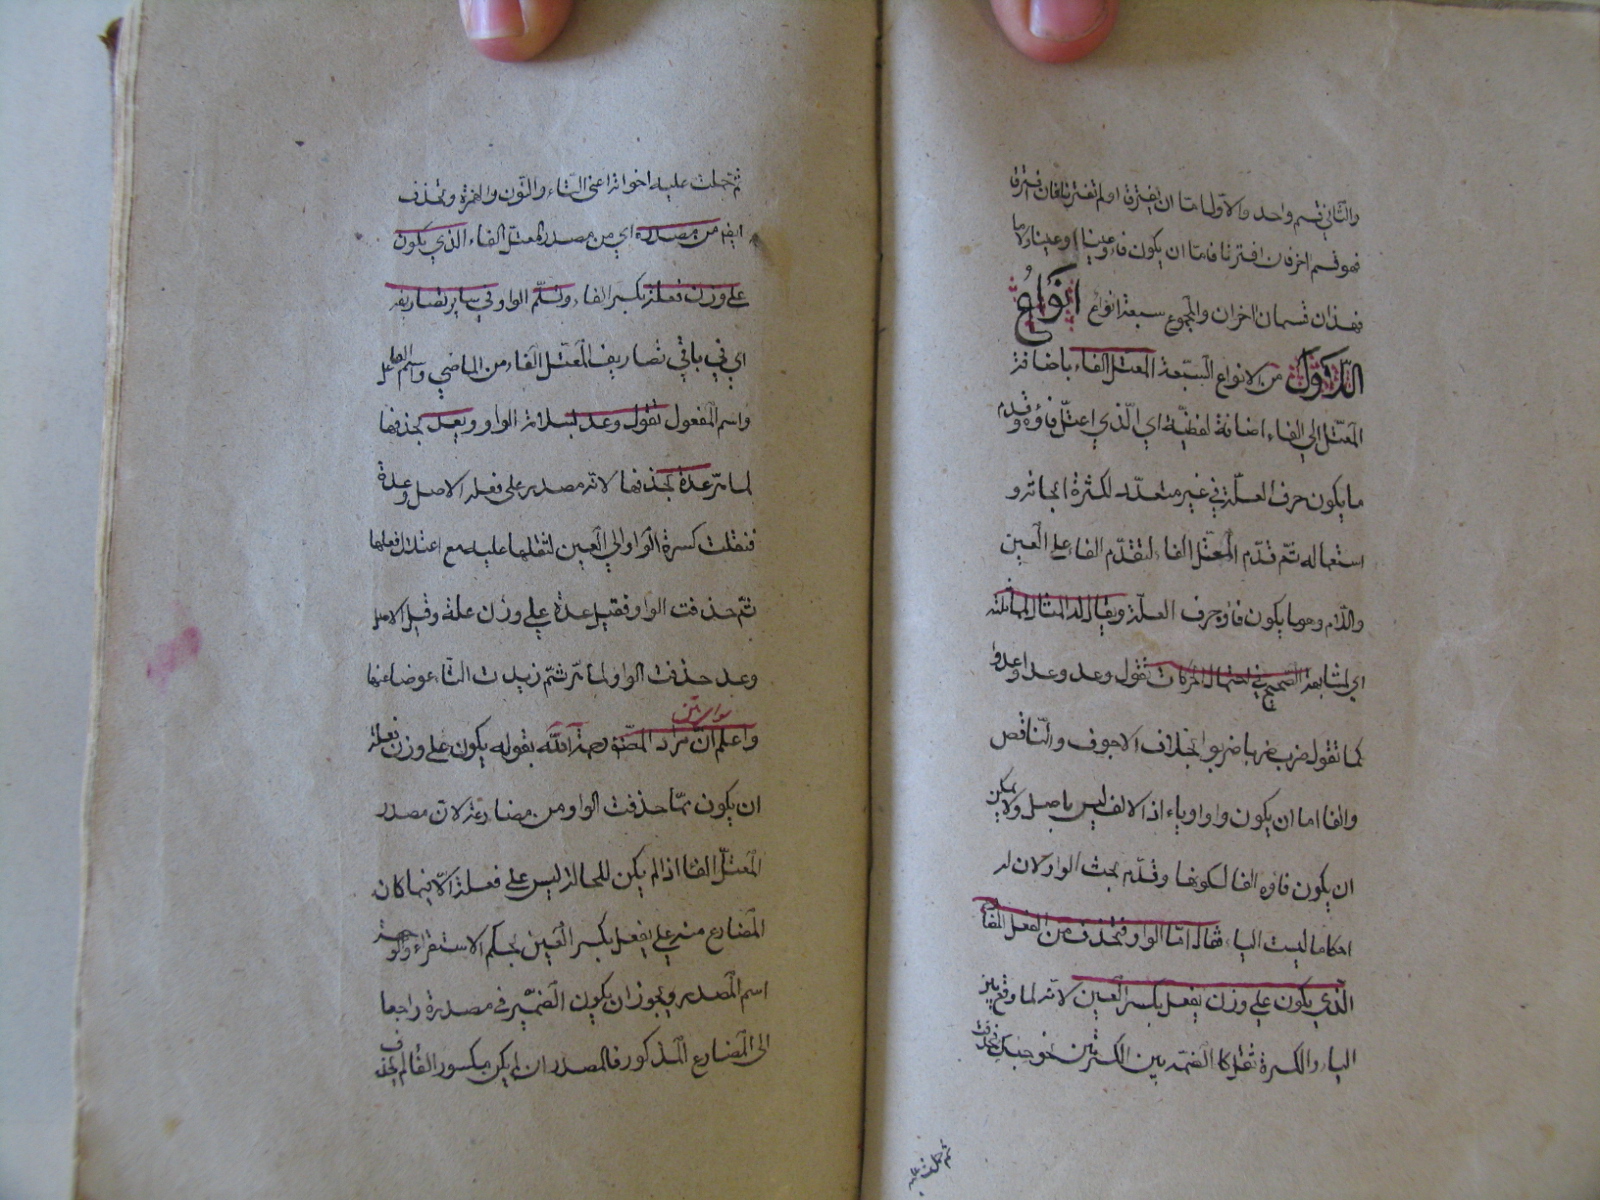 والثاني قسم واحد والاول اما ان يفترقا او لم يفترقا فان لم يفترقا
فهو قسم اخر فان افترقا فاما ان يكون فاء وعينا او عينا ولاما
فهذان قسمان اخران والمجموع سبعة انواع انواع
الاول من الانواع السبعة المعتل الفاء باضافة
المعتل الى الفاء اضافة لفظية اي الذي اعتل فاؤه وقدم
ما يكون حرف العلة في غير متعدد لكثرة ابحاثه و
استعماله ثم قدم المعتل الفاء لتقدم الفاء على العين
واللام وهو ما يكون فاؤه حرف العلة ويقال له المثال لمماثلته
اي لمشابهة الصحيح في احتمال الحركات تقول وعد وعدا وعدوا
كما تقول ضرب ضربا ضربوا بخلاف الاجوف والناقص
والفاء اما ان يكون واوا وياء اذ الالف ليس باصل ولا يمكن
ان يكون فاؤه الفا لسكونها وقدم بحث الواو لان له
احكاما ليست للياء فقال اما الواو فتحذف من الفعل المضارع
الذي يكون على وزن يفعل بكسر العين لانه لما وقع بين
الياء والكسرة ثقل كالضمة بين الكسرتين نحو فحذفت
ثم حملت عليه
ثم حملت عليه اخواتها اعني التاء والنون والهمزة وتحذف
ايضا من مصدره اي من مصدر المعتل الفاء الذي يكون
على وزن فعلة بكسر الفاء وتسلم الواو في سائر تصاريفه
اي في باقي تصاريف المعتل الفاء من الماضي واسم الفاعل
واسم المفعول تقول وعد بسلامة الواو ويعد بحذفها
لما مر عدة بحذفها لانه مصدر على فعلة الاصل وعدة
فنقلت كسرة الواو الى العين لثقلها عليه مع اعتلال فعلها
ثم حذفت الواو فقيل عدة على وزن علة وقيل الاصل
وعد حذفت الواو لما مر ثم زيدت التاء عوضا عنها
واعلم ان مراد المصنف رحمة الله بقوله يكون على وزن فعلة
ان يكون مما حذفت الواو من مضارعه لان مصدر
المعتل الفاء اذا لم يكن للحالة ليس على فعلة الا فيما كان
المضارع منه على يفعل بكسر العين بحكم الاستقراء والوجهة
اسم المصدر ويجوز ان يكون الضمير في مصدره راجعا
الى المضارع المذكور فالمصدر ان لم يكن مكسور الفاء لم يحذف